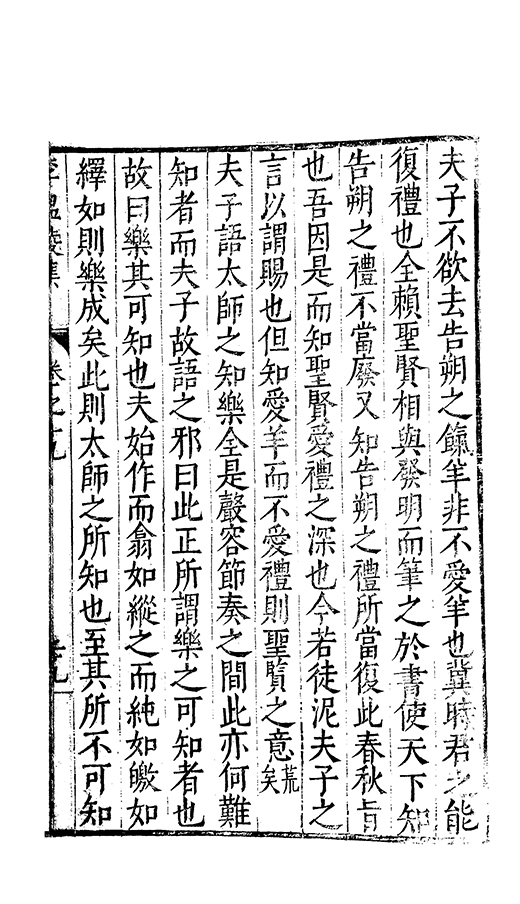 夫子不欲去告朔之餼羊非不愛羊也冀時君之能
復禮也全賴聖賢相與發明而筆之於書使天下知
告朔之禮不當廢又知告朔之禮所當復此春秋旨
也吾因是而知聖賢愛禮之深也今若徒泥夫子之
言以謂賜也但知愛羊而不愛禮則聖賢之意荒矣
夫子語太師之知樂全是聲容節奏之間此亦何難
知者而夫子故語之邪曰此正所謂樂之可知者也
故曰樂其可知也夫始作而翕如縱之而純如皦如
繹如則樂成矣此則太師之所知也至其所不可知
李溫陵集 卷之十九